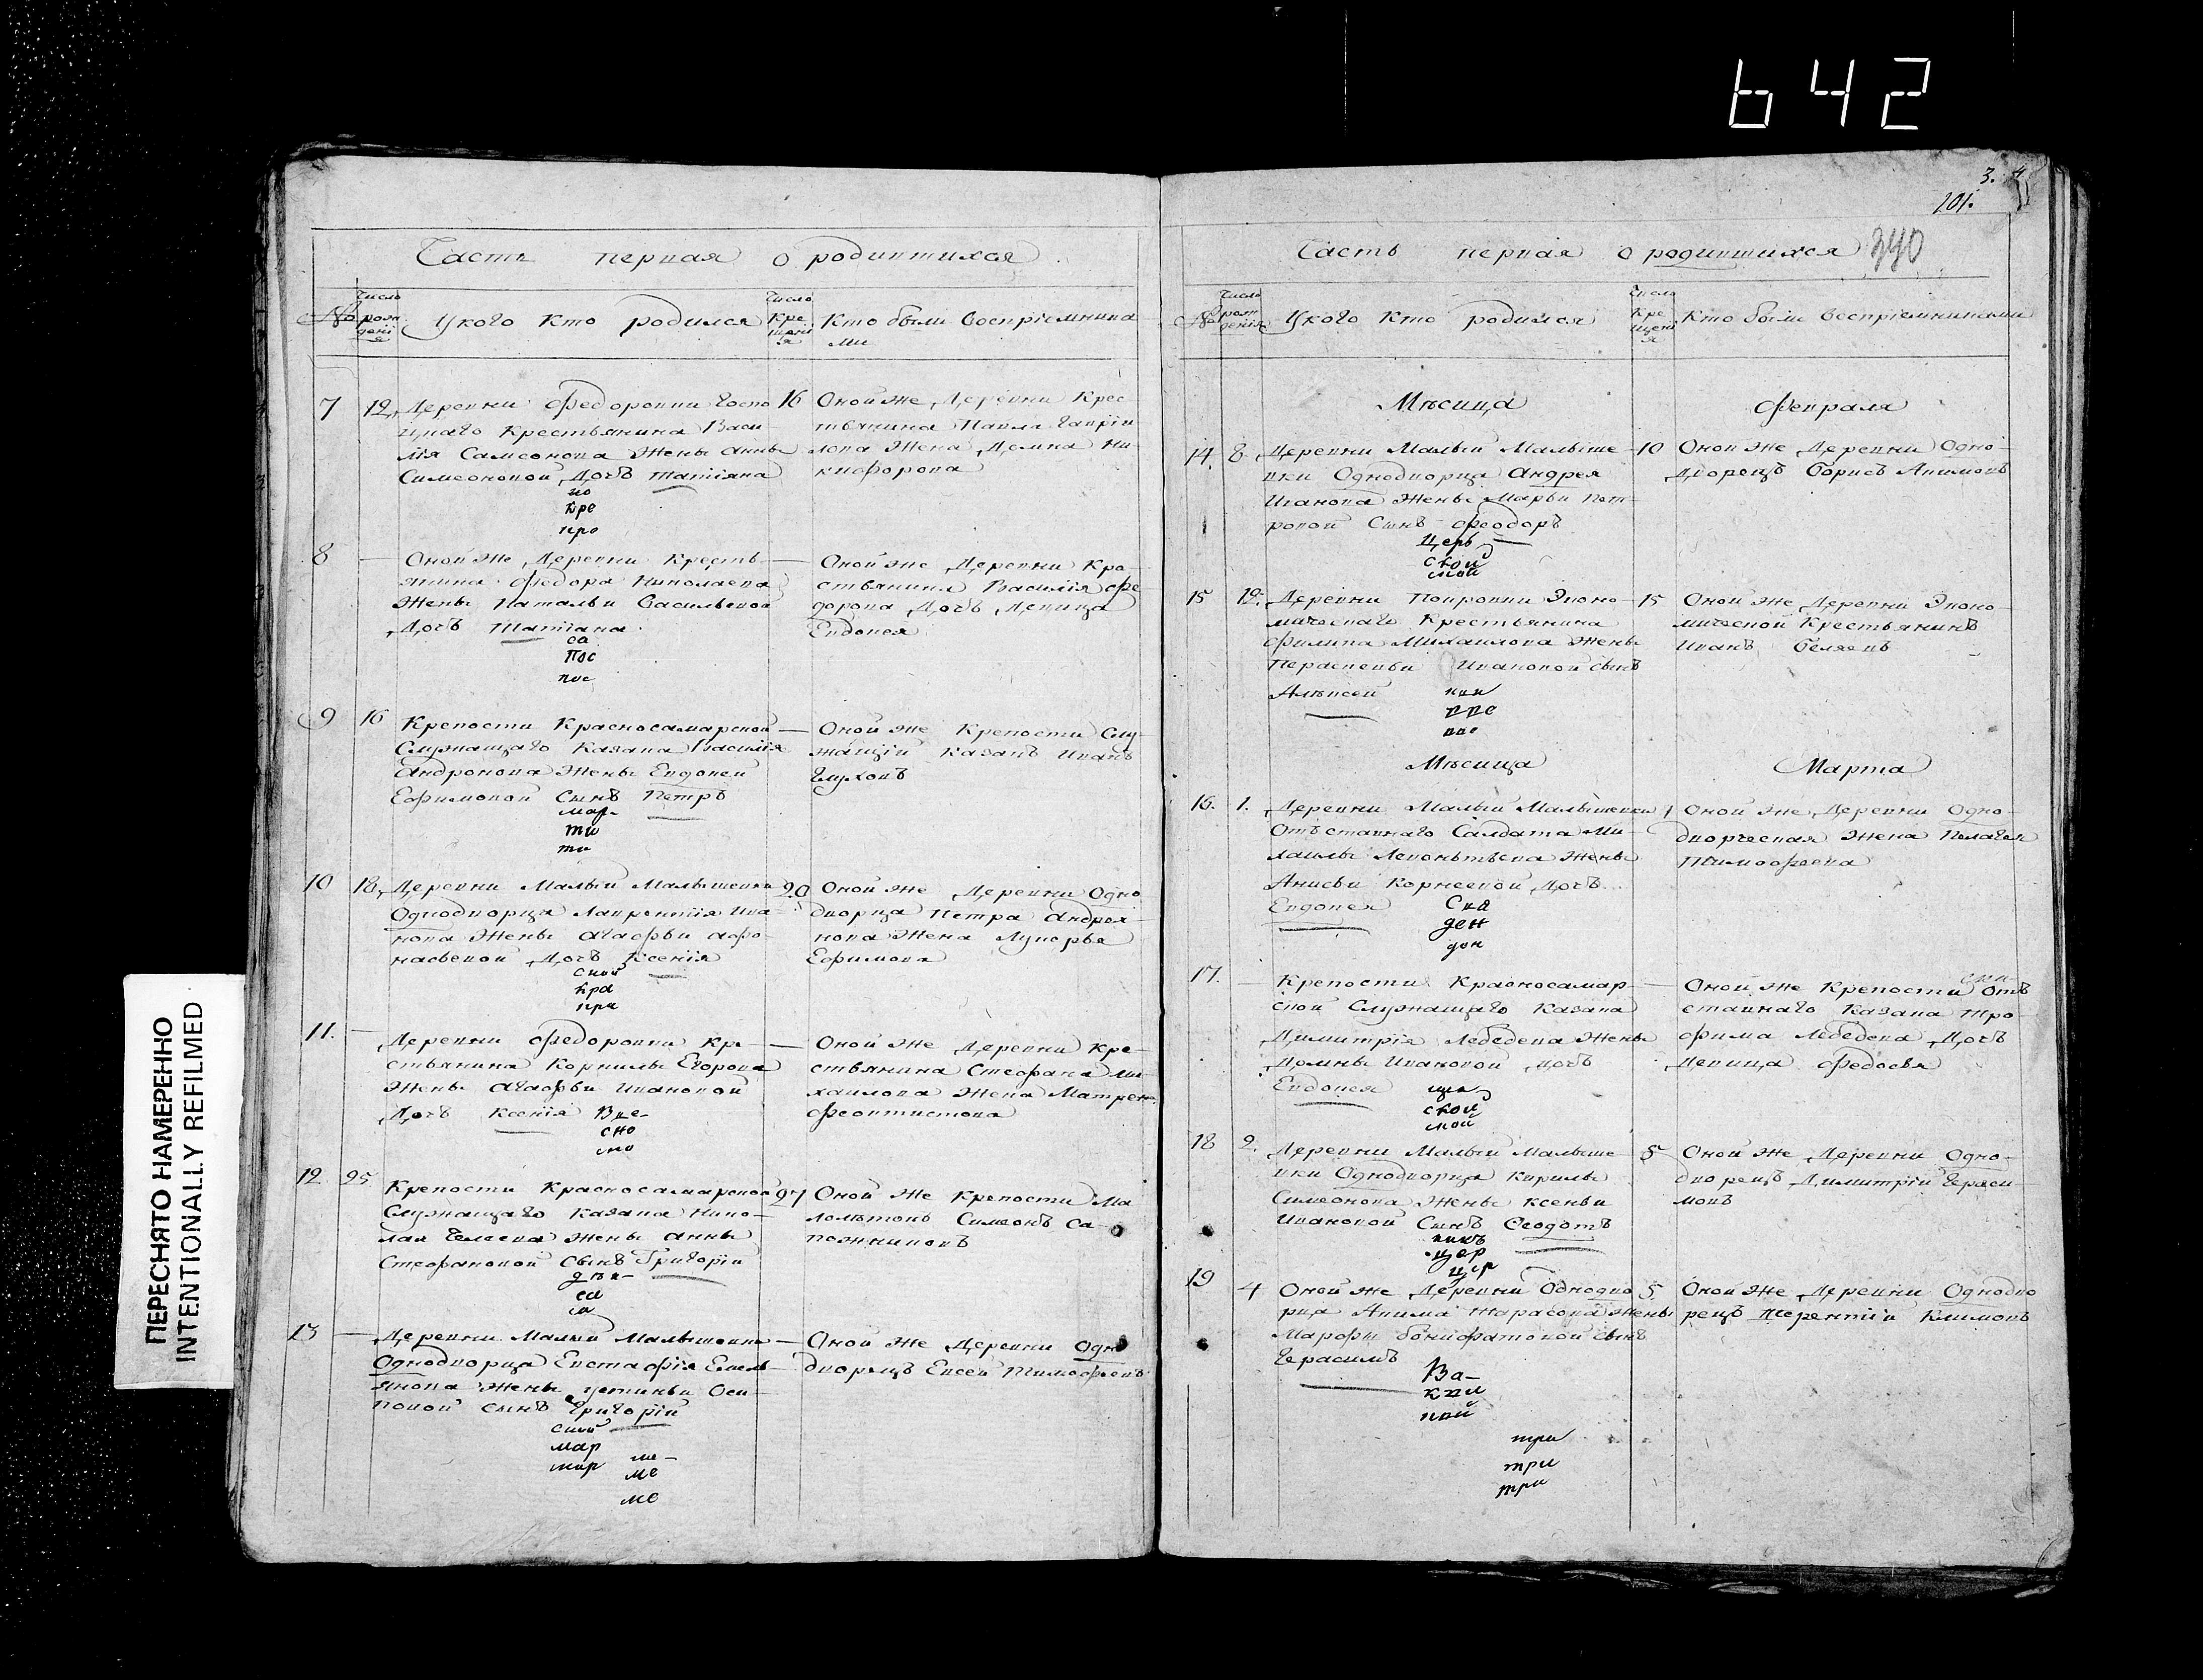 642
3. 4
201.
340
ПЕРЕСНЯТО НАМЕРЕННО
INTENTIONALLY REFILMED
Часть первая о родившихся
№
Число рождения
У кого кто родился
Число крещения
Кто были восприемника
ми
7 12. Деревни Федоровки Госпо
Крестьянина Васи-
лія Самсонова жены Анны
Симеоновой дочь Татіана
но
кре
кре
16 Оной же деревни крес
тьянина Павла Гаврии
лова жена Домна Ни-
кифорова
8 — Оной же деревни кресть-
янина Федора Николаева
жены Натальи Васильевой
дочь Татіана
са
пос
пос
— Оной же деревни кре-
стьянина Василія Фе-
дорова дочь девица
Евдокея
9 16 Крепости Красносамарской
Служащаго казака Василія
Андронова жены Евдокеи
Ефимовой сынъ Петръ
мар-
ти
ти
— Оной же крепости слу-
жащій казакъ Иванъ
Глуховъ
10 18. Деревни Малый Малышевки
Однодворца Лаврентія Ива-
нова жены Агафьи Афо-
насьевой дочь Ксенія
ской
кра
кра
20 Оной же деревни одно
дворца Петра Андрея-
нова жена Лукерья
Ефимова
11. — Деревни Федоровки кре-
стьянина Корнилы Егорова
жены Агафьи Ивановой
дочь Ксенія
Вце-
сно
сно
— Оной же деревни кре-
стьянина Стефана Ми-
хаилова жена Матрена
Феоктистова
12. 25 Крепости Красносамарской
Служащаго казака Нико-
лая жены Анны
Стефановой сынъ Григорій
са
са
27 Оной же крепости Ма
лолетокъ Симеонъ Са-
пожниковъ
13 — Деревни Малый Малышевки
Однодворца Евстафія Емель-
янова жены Устиньи Оси-
повой сынъ Григорій
ской
мар
мар
ме
ме
— Оной же деревни одно
дворецъ Евсей Тимофеевъ
Часть первая о родившихся
№
Число рождения
У кого кто родился
Число крещения
Кто были восприемниками
Месяца Февраля
14. 8. Деревни Малый Малыше-
вки Однодворца Андрея
Иванова жены Марьи Пет-
ровой сынъ Феодоръ
церь
ской
ской
10 Оной же деревни одно-
дворецъ Борисъ Акимовъ
15 12. Деревни Покровки Эконо-
мическаго крестьянина
Филипа Михаилова жены
Параскевьи Ивановой сынъ
Алексей
15 Оной же деревни Эконо-
мической крестьянинъ
Иванъ Беляевъ
Месяца Марта
16. 1. Деревни Малый Малышевки
Отъставнаго Салдата Ми-
хаилы Леконьтьева жены
Анисьи Корнеевой дочь
Евдокея
ден
ден
1 Оной же деревни одно-
дворческая жена Пелагея
Тимофеева
17. — Крепости Красносамар-
ской Служащаго казака
Димитрія Лебедева жены
Домны Ивановой дочь
Евдокея
ской
ской
— Оной же крепости отъ
ставнаго казака Тро-
фима Лебедева дочь
девица Федосья
18 2. Деревни Малый Малыше
вки Однодворца Кирилы
Симеонова жены Ксеньи
Ивановой сынъ Феодотъ
цер
цер
5 Оной же деревни одно-
дворецъ Димитрій Гераси-
мовъ
19 4 Оной же деревни Однодво
рца Акима Тарасова жены
Марфы Бонифатовой сынъ
Герасимъ
Ва-
5 Оной же деревни Однодво
рецъ Терентій Климовъ
три
три
три